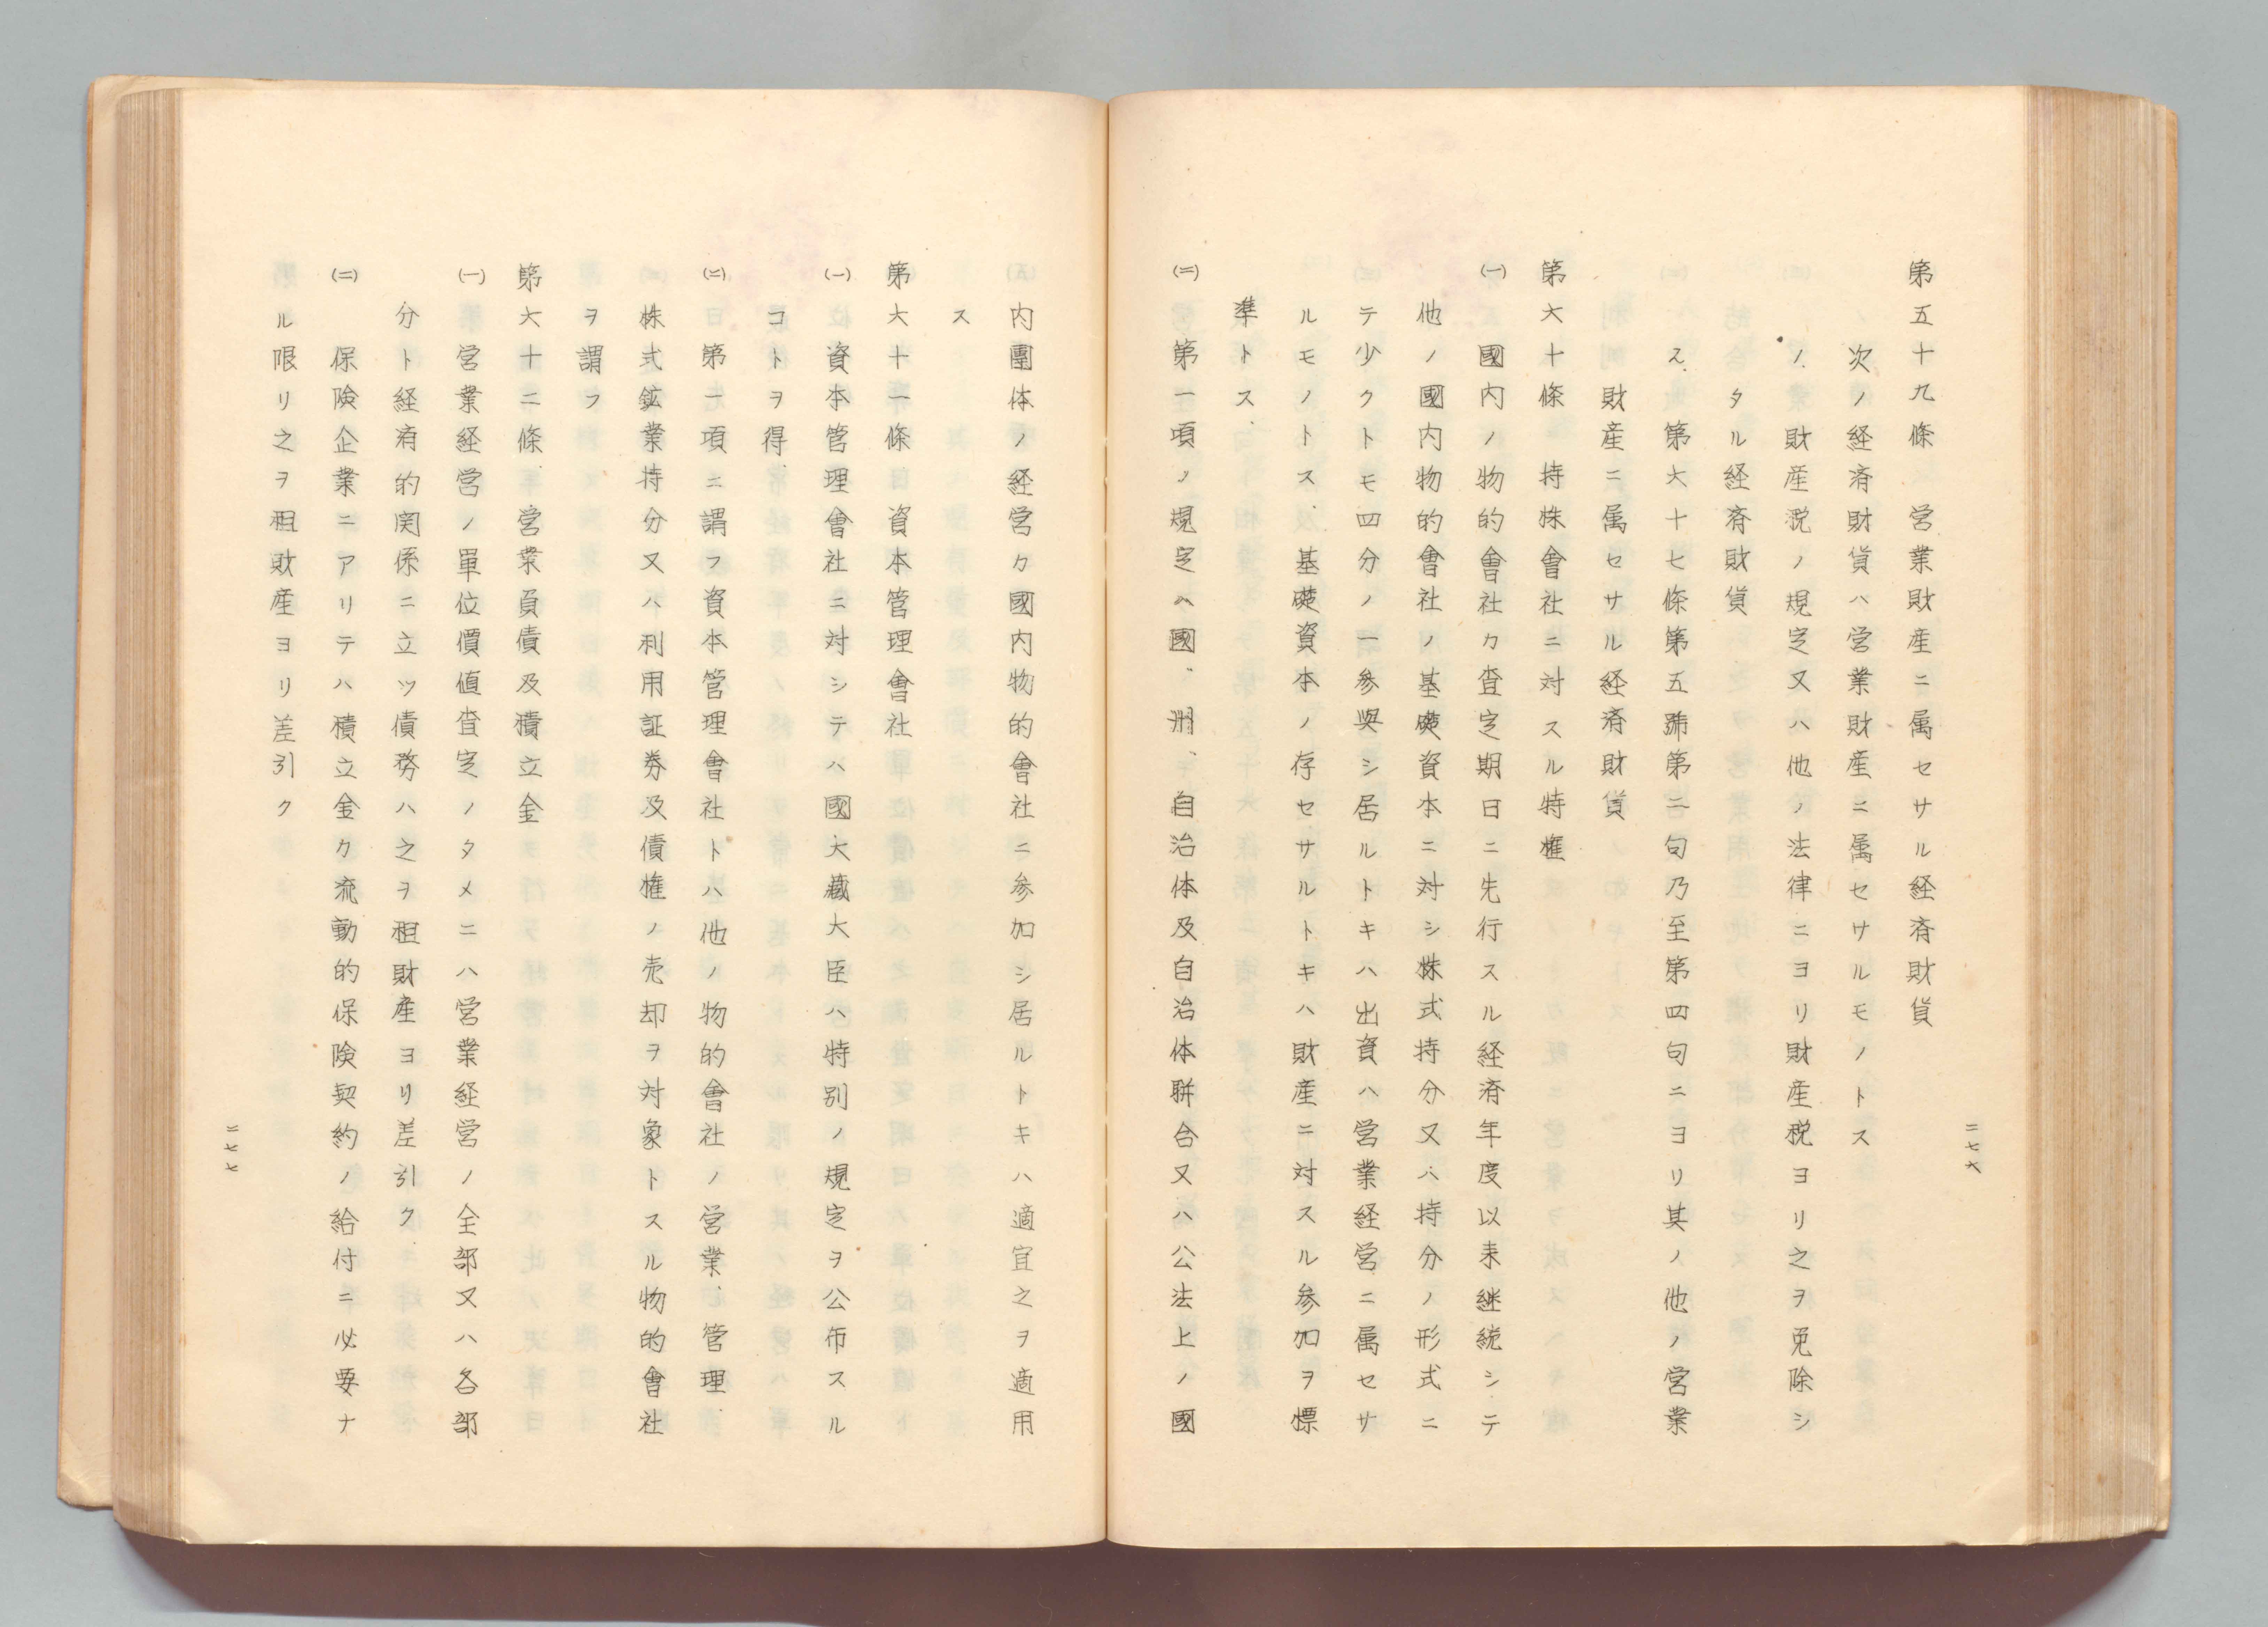 第五十九條　営業財産ニ属セサル経済財貨
次ノ経済財貨ハ営業財産ニ属セサルモノトス
ノ、財産税ノ規定又ハ他ノ法律ニヨリ財産税ヨリ之ヲ免除シ
タル経済財貨
ス、第六十七條第五号第二句乃至第四句ニヨリ其ノ他ノ営業
財産ニ属セサル経済財貨
第六十條　持株會社ニ対スル特権
(一)　國内ノ物的會社カ査定期日ニ先行スル経済年度以来継続シテ
他ノ國内物的會社ノ基礎資本ニ対シ株式持分又ハ持分ノ形式ニ
テ少クトモ四分ノ一参與シ居ルトキハ出資ハ営業経営ニ属セサ
ルモノトス、基礎資本ノ存セサルトキハ財産ニ対スル参加ヲ標
準トス、
(二)　第一項ノ規定ハ國、州、自治体及自治体聯合又ハ公法上ノ國
二七六
内團体ノ経営カ國内物的會社ニ参加シ居ルトキハ適宜之ヲ適用
ス
第六十一條　資本管理會社
(一)　資本管理會社ニ対シテハ國大藏大臣ハ特別ノ規定ヲ公布スル
コトヲ得、
(二)　第一項ニ謂フ資本管理會社トハ他ノ物的會社ノ営業、管理、
株式鉱業持分又ハ利用証券及債権ノ売却ヲ対象トスル物的會社
ヲ謂フ
第六十二條　営業負債及積立金
(一)　営業経営ノ単位價値査定ノタメニハ営業経営ノ全部又ハ各部
分ト経済的関係ニ立ツ債務ハ之ヲ租財産ヨリ差引ク、
(二)　保険企業ニアリテハ積立金カ流動的保険契約ノ給付ニ必要ナ
ル限リ之ヲ租財産ヨリ差引ク
二七七